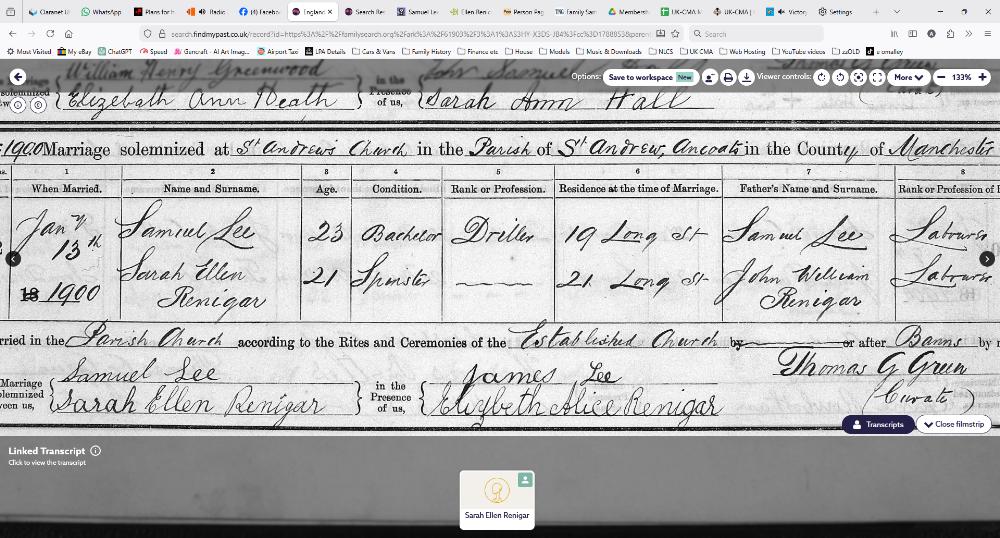 Claranet U
WhatsApp
Plans for h
Radio
(4) Facebo
England
Search Re
Samuel Le
Ellen Ren
Person Pag
Family San
Members
UK-CMA
UK-CMA |
Victor
Settings
search.findmypast.co.uk/record?id=
Search
Most Visited My eBay ChatGPT Speed Gencraft - AI Art Imag... Airport Taxi LPA Details Cars & Vans Family History Finance etc House Models Music & Downloads NLCS UK CMA Web Hosting YouTube videos zzOLD e omalley
William Henry Greenwood
in the
John Samuel
Options: Save to workspace New Viewer controls: More 133%
solemnized
Elizebeth Ann Death
Presence
of us,
Sarah Ann Hall
1900 Marriage solemnized at St Andrews Church in the Parish of St Andrew, Ancoats in the County of Manchester
1 2 3 4 5 6 7 8
When Married. Name and Surname. Age. Condition. Rank or Profession. Residence at the time of Marriage. Father's Name and Surname. Rank or Profession of
Jany 13th Samuel Lee 23 Bachelor Driller 19 Long St Samuel Lee Labourer
18 1900 Sarah Ellen Renigar 21 Spinster 21 Long St John William Renigar Labourer
rried in the Parish Church according to the Rites and Ceremonies of the Established Church by or after Banns by
Marriage
Samuel Lee
in the
James Lee
Thomas G Green
lemnized
een us,
Sarah Ellen Renigar
Presence
of us,
Elizybeth Alice Renigar
(Curate)
Transcripts
Close filmstrip
Linked Transcript
Click to view the transcript
Sarah Ellen Renigar